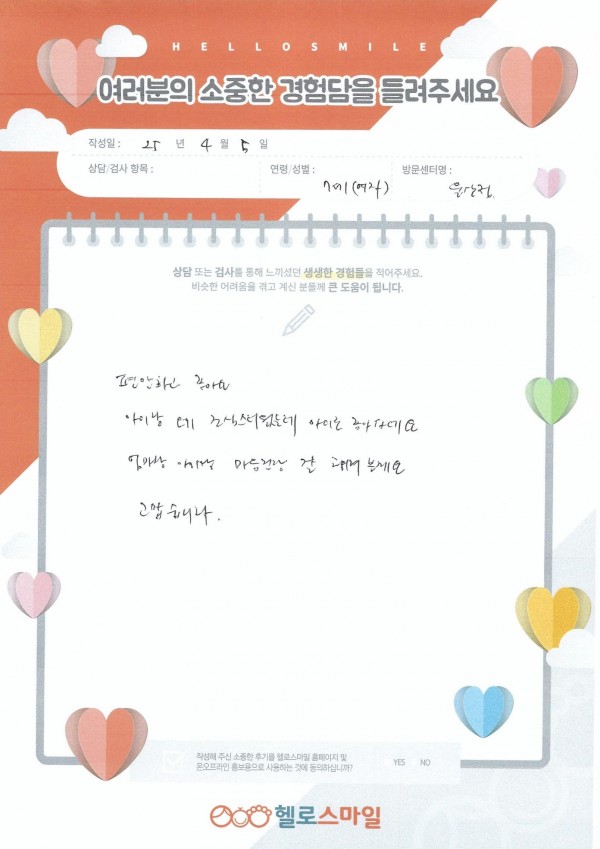 HELLOSMILE
여러분의 소중한 경험담을 들려주세요
작성일 : 25 년 4 월 5 일
상담/검사 항목 :
연령/성별 : 7세 (여자)
방문센터명 :
상담 또는 검사를 통해 느끼셨던 생생한 경험들을 적어주세요.
비슷한 어려움을 겪고 계신 분들께 큰 도움이 됩니다.
편안하고 좋아요
아이랑 조심스러웠는데 아이도 좋아하네요
엄마랑 아이랑 마음건강 잘 보세요
고맙습니다.
작성해 주신 소중한 후기를 헬로스마일 홈페이지 및
온오프라인 홍보용으로 사용하는 것에 동의하십니까?
YES NO
헬로스마일